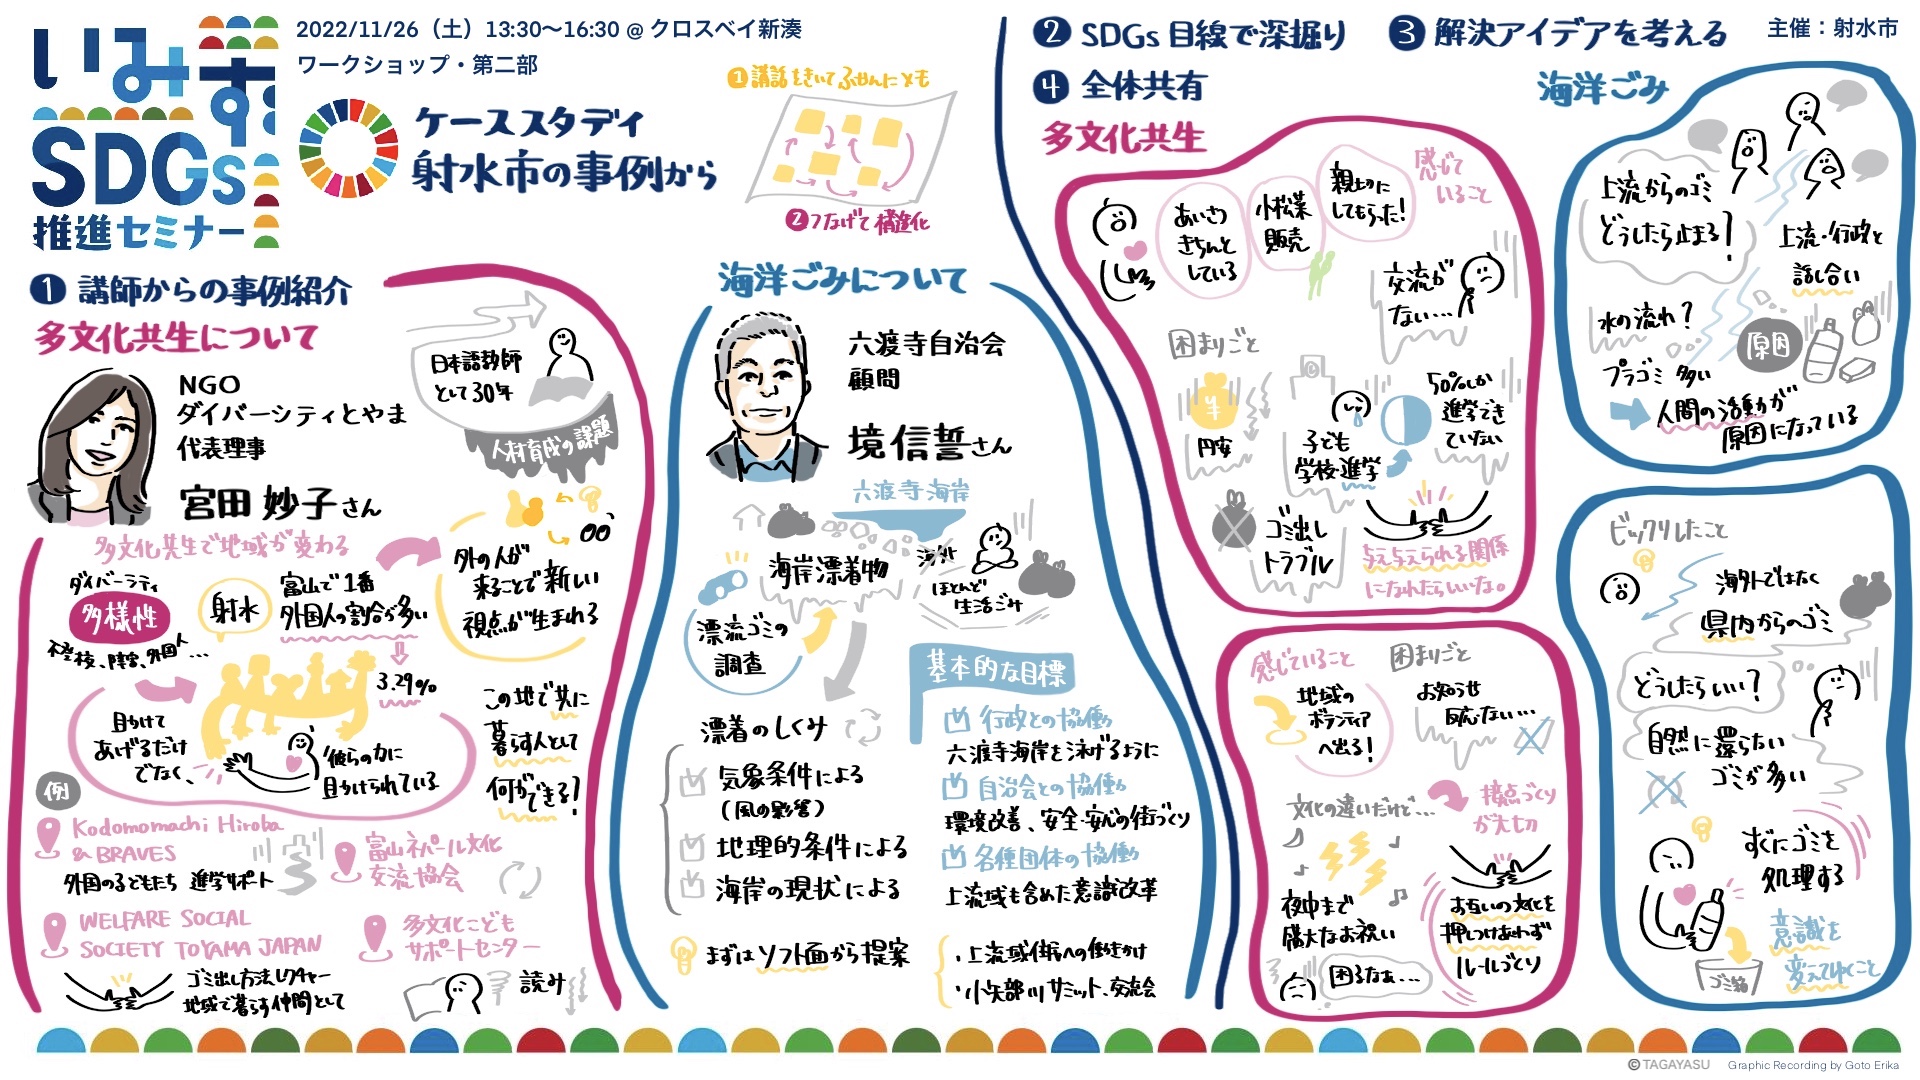 いみず
SDGs
推進セミナー
2022/11/26（土）13:30〜16:30 @ クロスベイ新湊
ワークショップ・第二部
ケーススタディ
射水市の事例から
❶講話をきいてふせんにメモ
❷つなげて構造化
❶ 講師からの事例紹介
多文化共生について
NGO
ダイバーシティとやま
代表理事
宮田 妙子さん
日本語教師
として30年
人材育成の課題
多文化共生で地域が変わる
ダイバーシティ
多様性
不登校、障害、外国人…
射水
富山で1番
外国人の割合が多い
3.29%
外の人が
来ることで新しい
視点が生まれる
助けて
あげるだけ
でなく、
彼らの力に
助けられている
この地で共に
暮らす人として
何ができる？
例
Kodomomachi Hiroba
& BRAVES
外国の子どもたち 進学サポート
富山ネパール文化
交流協会
WELFARE SOCIAL
SOCIETY TOYAMA JAPAN
ゴミ出し方法レクチャー
地域で暮らす仲間として
多文化こども
サポートセンター
読み
海洋ごみについて
六渡寺自治会
顧問
境信誓さん
六渡寺海岸
海岸漂着物
海外
ほとんど
生活ごみ
漂流ゴミの
調査
漂着のしくみ
気象条件による
（風の影響）
地理的条件による
海岸の現状による
まずはソフト面から提案
基本的な目標
行政との協働
六渡寺海岸を泳げるように
自治会との協働
環境改善、安全・安心の街づくり
各種団体の協働
上流域も含めた意識改革
・上流域住民への働きかけ
・小矢部川サミット、交流会
❷ SDGs 目線で深掘り
❸ 解決アイデアを考える
主催：射水市
❹ 全体共有
多文化共生
感じて
いること
あいさつ
きちんと
している
小松菜
販売
親切に
してもらった！
交流が
ない…
困まりごと
¥
円安
子ども
学校・進学
50%しか
進学でき
ていない
ゴミ出し
トラブル
与え与えられる関係
になれたらいいな。
感じていること
地域の
ボランティア
へ出る！
困まりごと
お知らせ
反応ない…
文化の違いだけど…
夜中まで
盛大なお祝い
困るなぁ…
接点づくり
が大切
お互いの文化を
押しつけあわず
ルールづくり
海洋ごみ
上流からのゴミ
どうしたら止まる？
上流・行政と
話し合い
水の流れ？
原因
プラゴミ 多い
人間の活動が
原因になっている
ビックリしたこと
海外ではなく
県内からのゴミ
どうしたらいい？
自然に還らない
ゴミが多い
すぐにゴミを
処理する
意識を
変えてゆくこと
ゴミ箱
© TAGAYASU Graphic Recording by Goto Erika